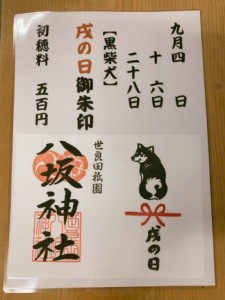 九月四日
十六日
二十八日
【黒柴犬】
戌の日御朱印
初穂料 五百円
戌の日
世良田祇園
八坂神社